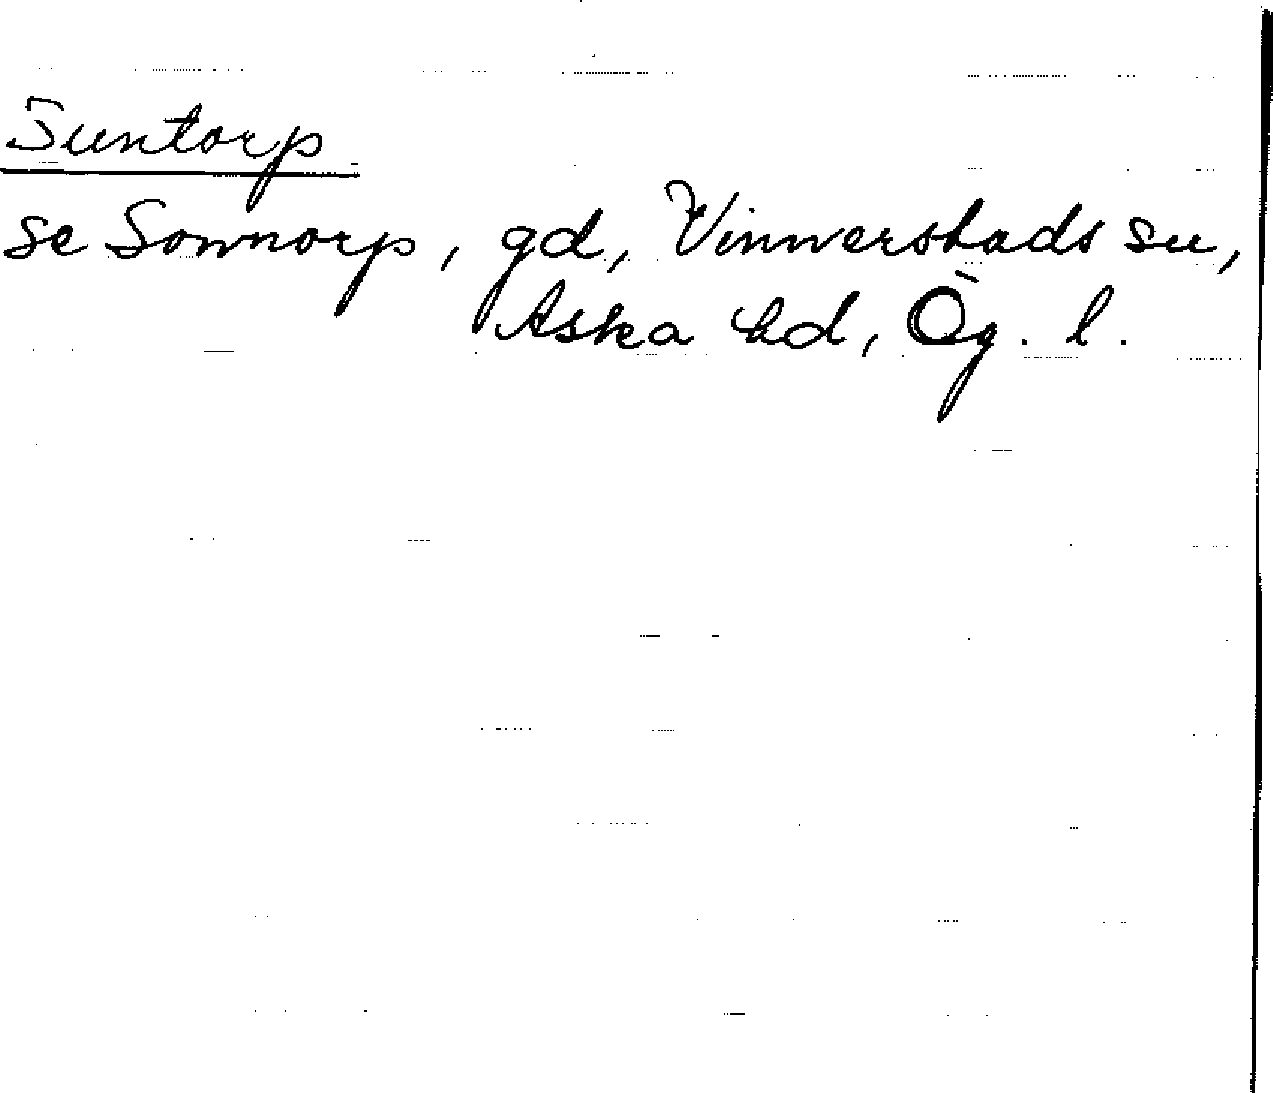 Suntorp
se Sonnorp, gd, Vinnerstads sn,
Aska hd, Ög. l.